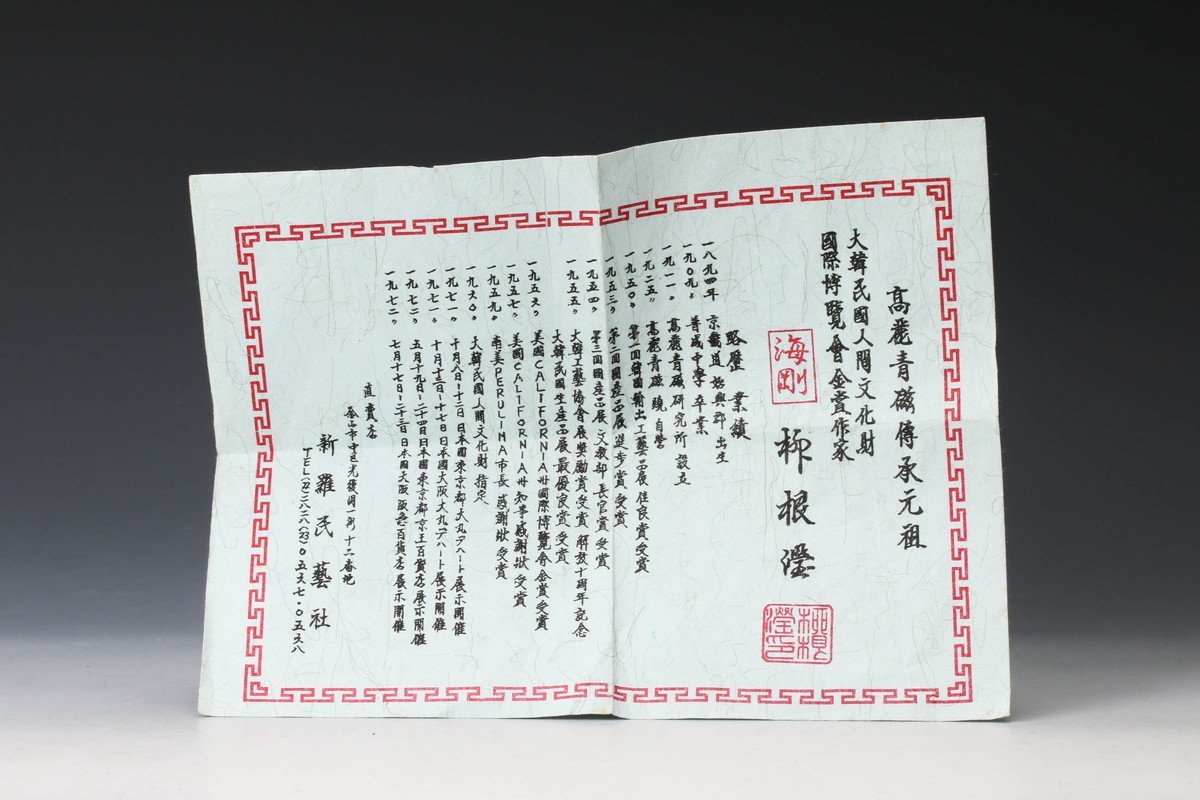 高麗青磁傳承元祖
大韓民國人間文化財
國際博覽會金賞作家
海剛
柳根瀅
柳根瀅印
略歷 業績
一八九四年 京畿道 始興郡 出生
一九〇九〃 普成中學 卒業
一九一一〃 高麗青磁研究所 設立
一九二五〃 高麗青磁 燒自營
一九五〇〃 第一回韓國輸出工藝品展佳良賞受賞
一九五三〃 第二回國産品展 賞 受賞
一九五四〃 第三回國産品展 文教部 長官賞 受賞
一九五五〃 大韓工藝協會展獎勵賞受賞 解放十周年記念
大韓民國生産品展最優良賞受賞
一九五六〃 美國CALIFORNIA州國際博覽會金賞受賞
一九五七〃 美國CALIFORNIA州知事感謝狀受賞
一九五九〃 南美PERULIMA市長 感謝狀 受賞
一九六〇〃 大韓民國人間文化財 指定
一九七一〃 十月八日-十二日日本國東京都大丸デパート展示開催
一九七一〃 十月十三日-十七日日本國大阪大丸デパート展示開催
一九七二〃 五月十九日-二十四日日本國東京都京王百貨店展示開催
一九七二〃 七月十七日-二十三日日本國大阪阪急百貨店展示開催
直賣店
釜山市中區光復洞一街十二番地
新羅民藝社
TEL(22)二八二八(23)〇五六七·〇五六八